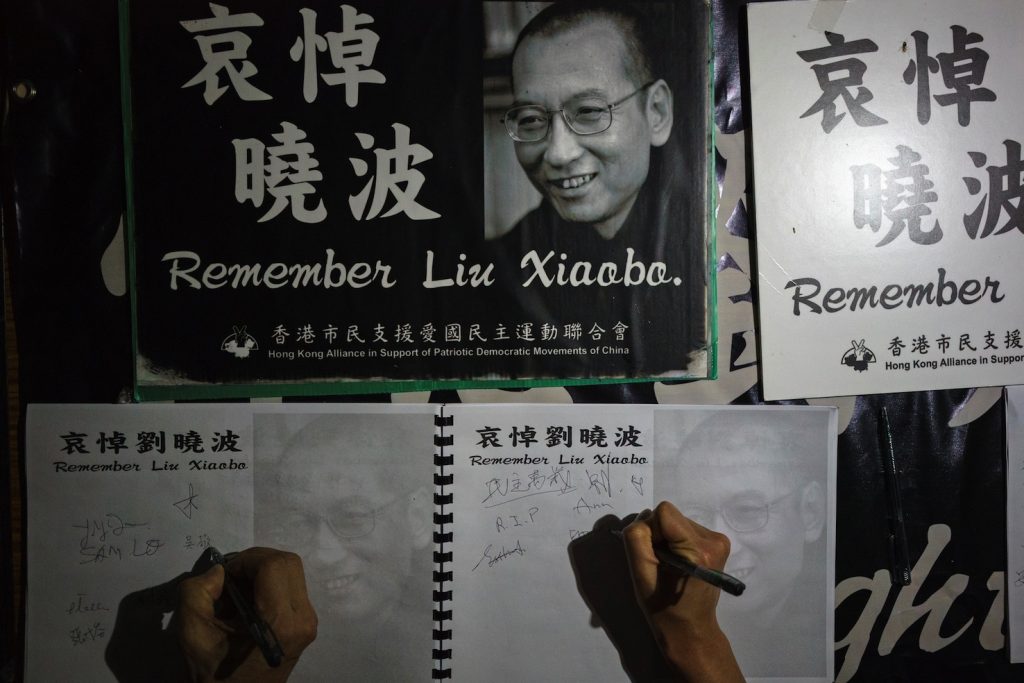 哀悼
曉波
Remember Liu Xiaobo.
香港市民支援愛國民主運動聯合會
Hong Kong Alliance in Support of Patriotic Democratic Movements of China
哀悼
曉波
Remember
香港市民支援
Hong Kong Alliance in Suppor
哀悼劉曉波
Remember Liu Xiaobo
SAM LO
哀悼劉曉波
Remember Liu Xiaobo
R.I.P
Ann
ghi